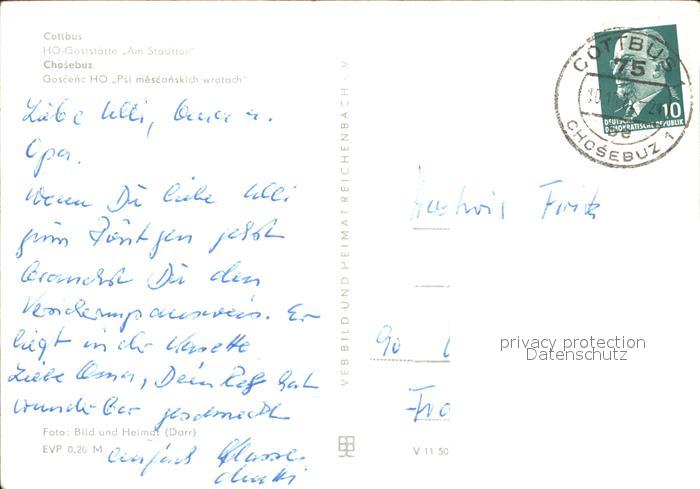 Cottbus
HO-Gaststätte „Am Stadttor"
Chośebuz
Gosćeńc HO „Pśi měsćańskich wrotach"
Liebe Ulli, Oma u.
Opa.
Wenn Du liebe Ulli
zum Röntgen gehst
brauchst Du den
Versicherungsausweis. Er
liegt in der Kassette
Liebe Oma, Dein hat
wunderbar geschmeckt
einfach Klasse
Foto: Bild und Heimat (Darr)
EVP 0,20 M
VEB BILD UND HEIMAT REICHENBACH · V
V 11 50
COTTBUS 1
75
CHOŚEBUZ 1
10
DEUTSCHE
DEMOKRATISCHE REPUBLIK
Fritz
90
privacy protection
Datenschutz